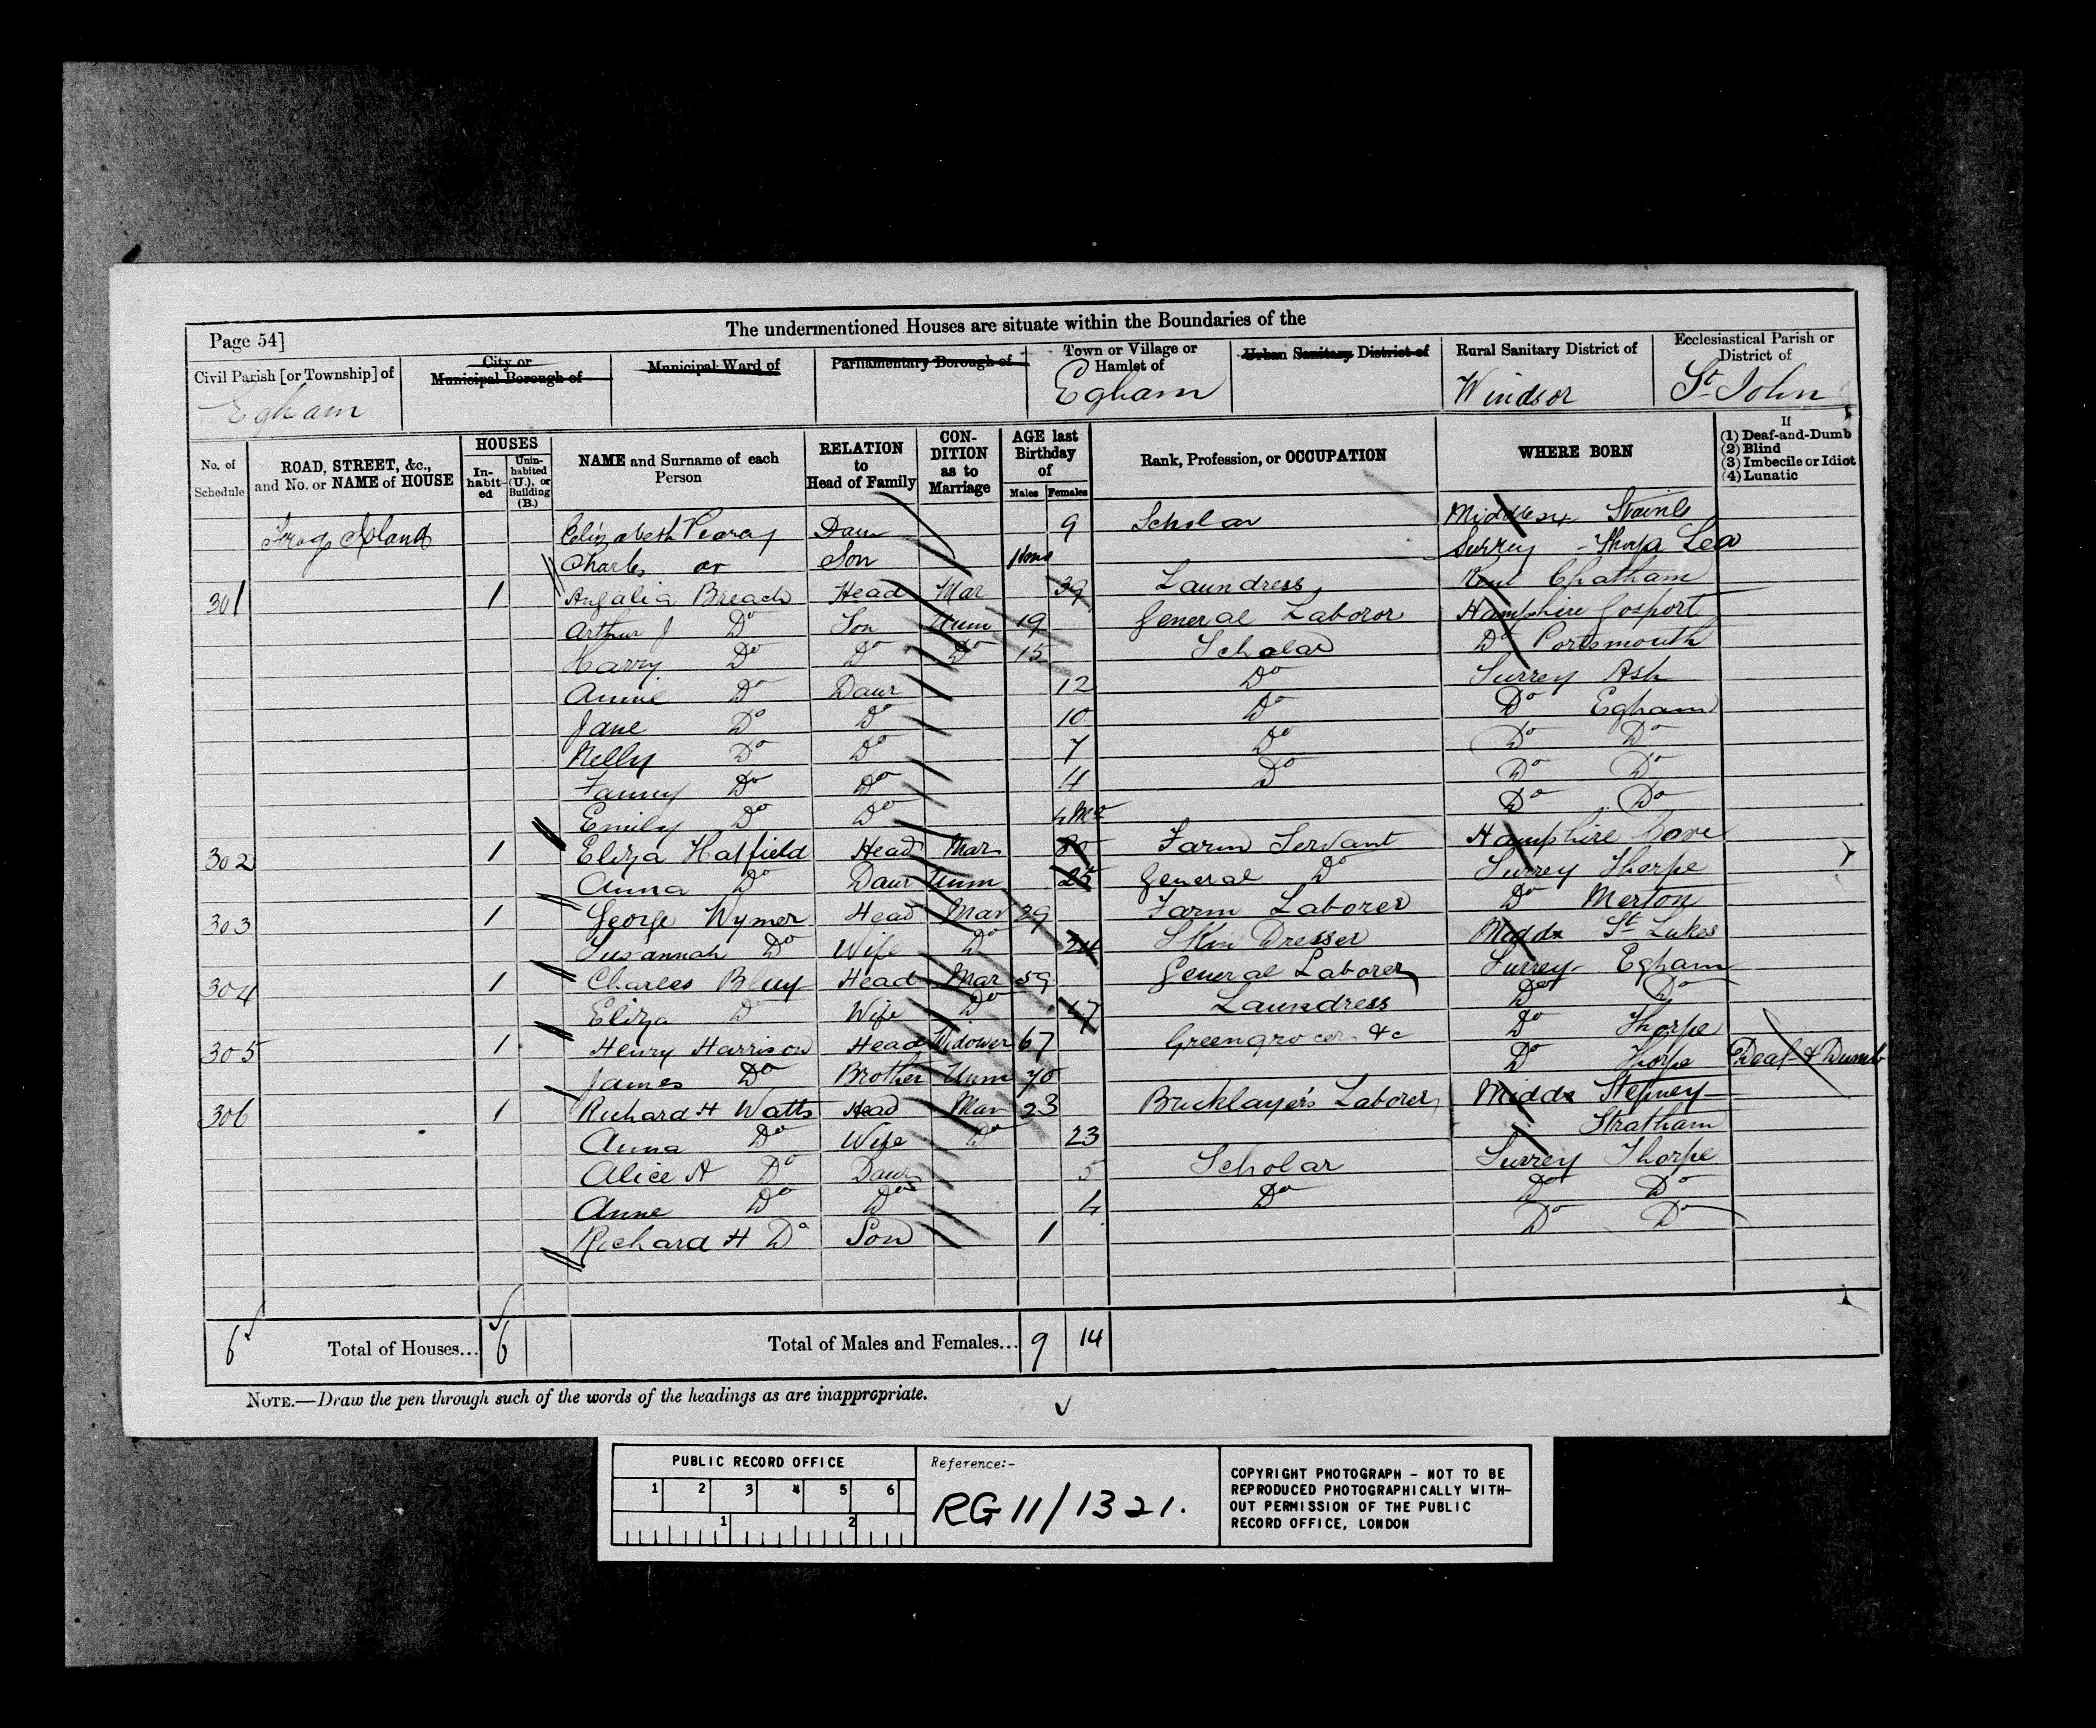 The undermentioned Houses are situate within the Boundaries of the
Page 54]
Civil Parish [or Township] of
Egham
City or
Municipal Borough of
Municipal Ward of
Parliamentary Borough of
Town or Village or
Hamlet of
Egham
Urban Sanitary District of
Rural Sanitary District of
Windsor
Ecclesiastical Parish or
District of
St. John
No. of
Schedule
ROAD, STREET, &c.,
and No. or NAME of HOUSE
HOUSES
In-
habit-
ed
Unin-
habited
(U.), or
Building
(B.)
NAME and Surname of each
Person
RELATION
to
Head of Family
CON-
DITION
as to
Marriage
AGE last
Birthday
of
Males
Females
Rank, Profession, or OCCUPATION
WHERE BORN
If
(1) Deaf-and-Dumb
(2) Blind
(3) Imbecile or Idiot
(4) Lunatic
Frogs Island Elizabeth Daur 9 Scholar Middlesex Stains
Charles Do Son Surrey - Thorpe Lea
301 1 Breach Head Mar 39 Laundress Kent Chatham
Arthur J Do Son Unm 19 General Laboror Hampshire Gosport
Harry Do Do Do 15 Scholar Do Portsmouth
Annie Do Daur 12 Do Surrey Ash
Jane Do Do 10 Do Do Egham
Nelly Do Do 7 Do Do Do
Fanny Do Do 4 Do Do Do
Emily Do Do 4 Mo Do Do
302 1 Eliza Hatfield Head Mar Farm Servant Hampshire
Anna Do Daur Unm 25 General Do Surrey Thorpe
303 1 George Wymer Head Mar 29 Farm Laborer Do Merton
Susannah Do Wife Do 24 Skin Dresser Middx St Lukes
304 1 Charles Head Mar 59 General Laborer Surrey Egham
Eliza Do Wife Do 47 Laundress Do Do
305 1 Henry Harrison Head Widower 67 Greengrocer &c Do Thorpe
James Do Brother Unm 70 Do Thorpe Deaf & Dumb
306 1 Richard H Watts Head Mar 23 Bricklayer's Laborer Middx Stepney
Anna Do Wife Do 23 Stratham
Alice A Do Daur 5 Scholar Surrey Thorpe
Anne Do Do 4 Do Do Do
Richard H Do Son 1 Do Do
6 Total of Houses... 6 Total of Males and Females... 9 14
NOTE.—Draw the pen through such of the words of the headings as are inappropriate.
PUBLIC RECORD OFFICE
1 2 3 4 5 6
1 2
Reference:-
RG 11/1321.
COPYRIGHT PHOTOGRAPH - NOT TO BE
REPRODUCED PHOTOGRAPHICALLY WITH-
OUT PERMISSION OF THE PUBLIC
RECORD OFFICE, LONDON